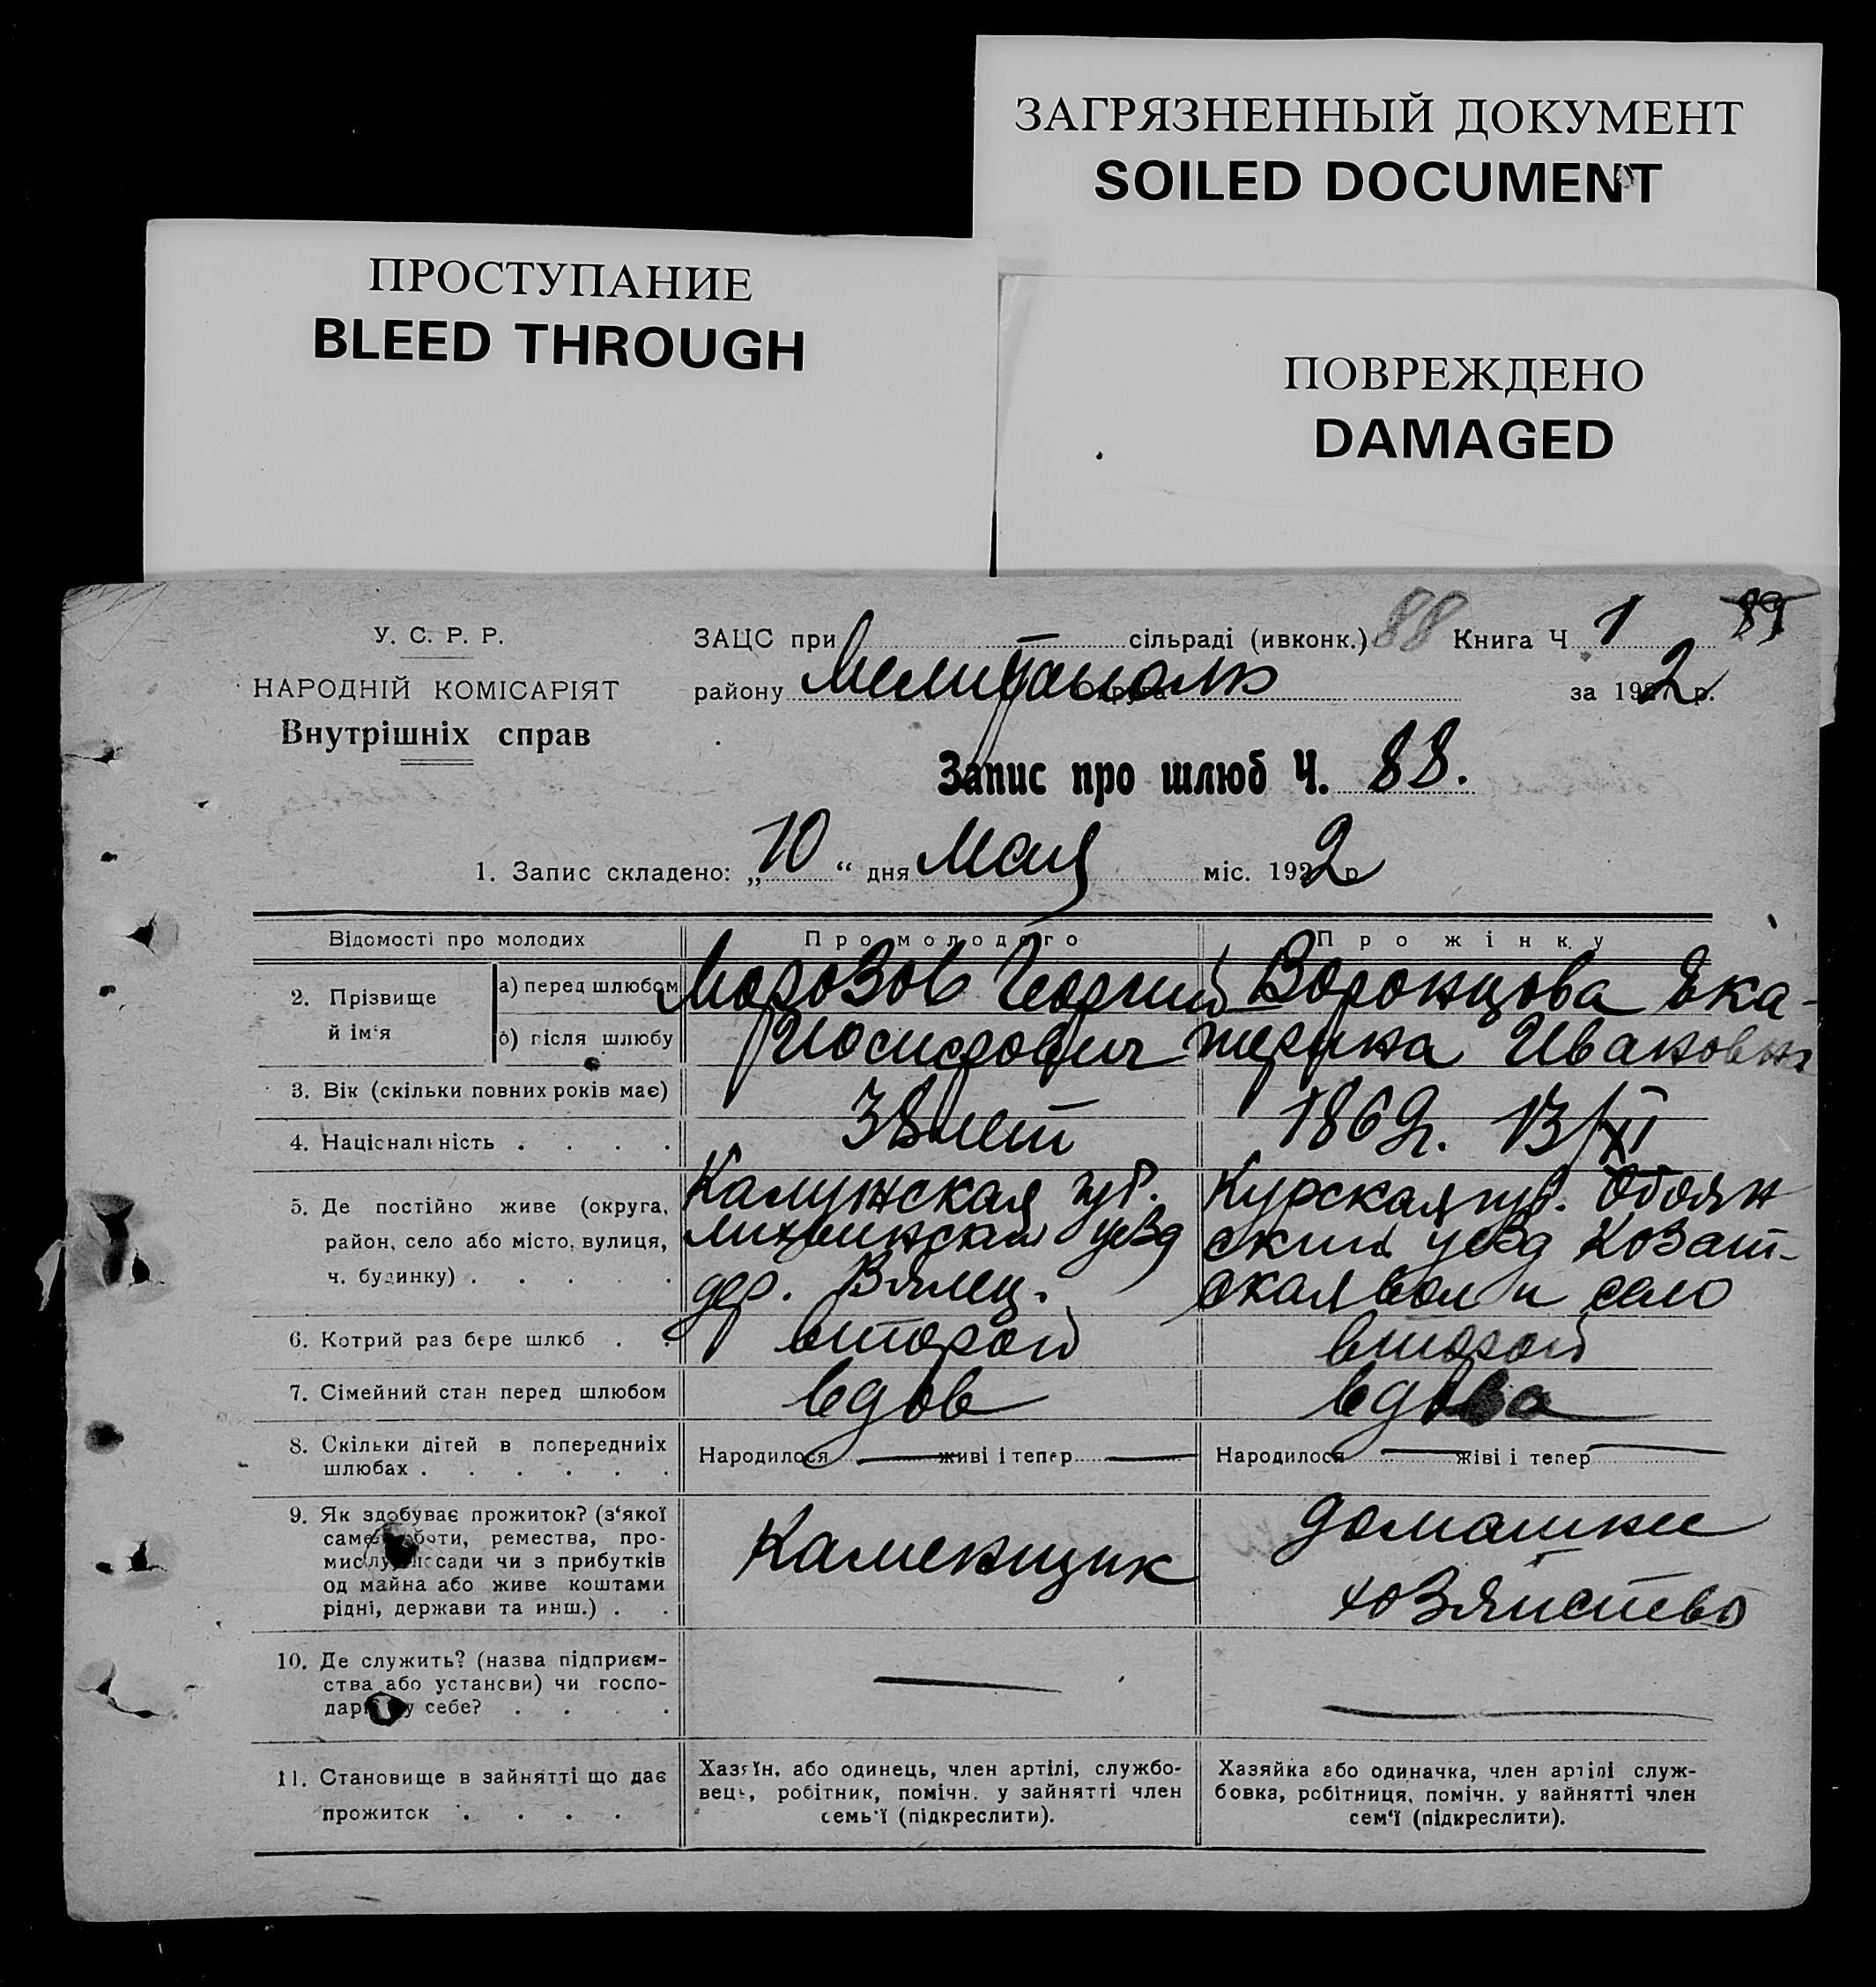 ЗАГРЯЗНЕННЫЙ ДОКУМЕНТ
SOILED DOCUMENT
ПРОСТУПАНИЕ
BLEED THROUGH
ПОВРЕЖДЕНО
DAMAGED
У. С. Р. Р.
НАРОДНІЙ КОМІСАРІЯТ
Внутрішніх справ
ЗАЦС при сільраді (ивконк.) 88 Книга Ч 1 89
району Мелитополь за 1922 р.
Запис про шлюб Ч. 88.
1. Запис складено: „10“ дня Мая міс. 1922 р
Відомості про молодих
Про молодого
Про жінку
2. Прізвище й ім'я
а) перед шлюбом
б) після шлюбу
Морозов Георгий
Иосифович
Воронцова Ека-
терина Ивановна
3. Вік (скільки повних років має)
4. Національність . . . .
38 лет
1869г. 13/XI
5. Де постійно живе (округа,
район, село або місто, вулиця,
ч. будинку) . . . . .
Калужская губ.
Лихвинский уезд
дер.
Курская губ. Обоян
ский уезд Козат-
ская вол и село
6. Котрий раз бере шлюб . .
второй
второй
7. Сімейний стан перед шлюбом
вдов
вдова
8. Скільки дітей в попередніх
шлюбах . . . . . .
Народилося — живі і тепер —
Народилося — живі і тепер —
9. Як здобуває прожиток? (з'якої
саме роботи, ремества, про-
мислу, посади чи з прибутків
од майна або живе коштами
рідні, держави та инш.) . .
Каменщик
домашнее
хозяйство
10. Де служить? (назва підприєм-
ства або установи) чи госпо-
дарює у себе? . . . .
—
—
11. Становище в зайнятті що дає
прожиток . . . .
Хазяїн, або одинець, член артілі, службо-
вець, робітник, помічн. у зайнятті член
семь'ї (підкреслити).
Хазяйка або одиначка, член артілі служ-
бовка, робітниця, помічн. у зайнятті член
сем'ї (підкреслити).